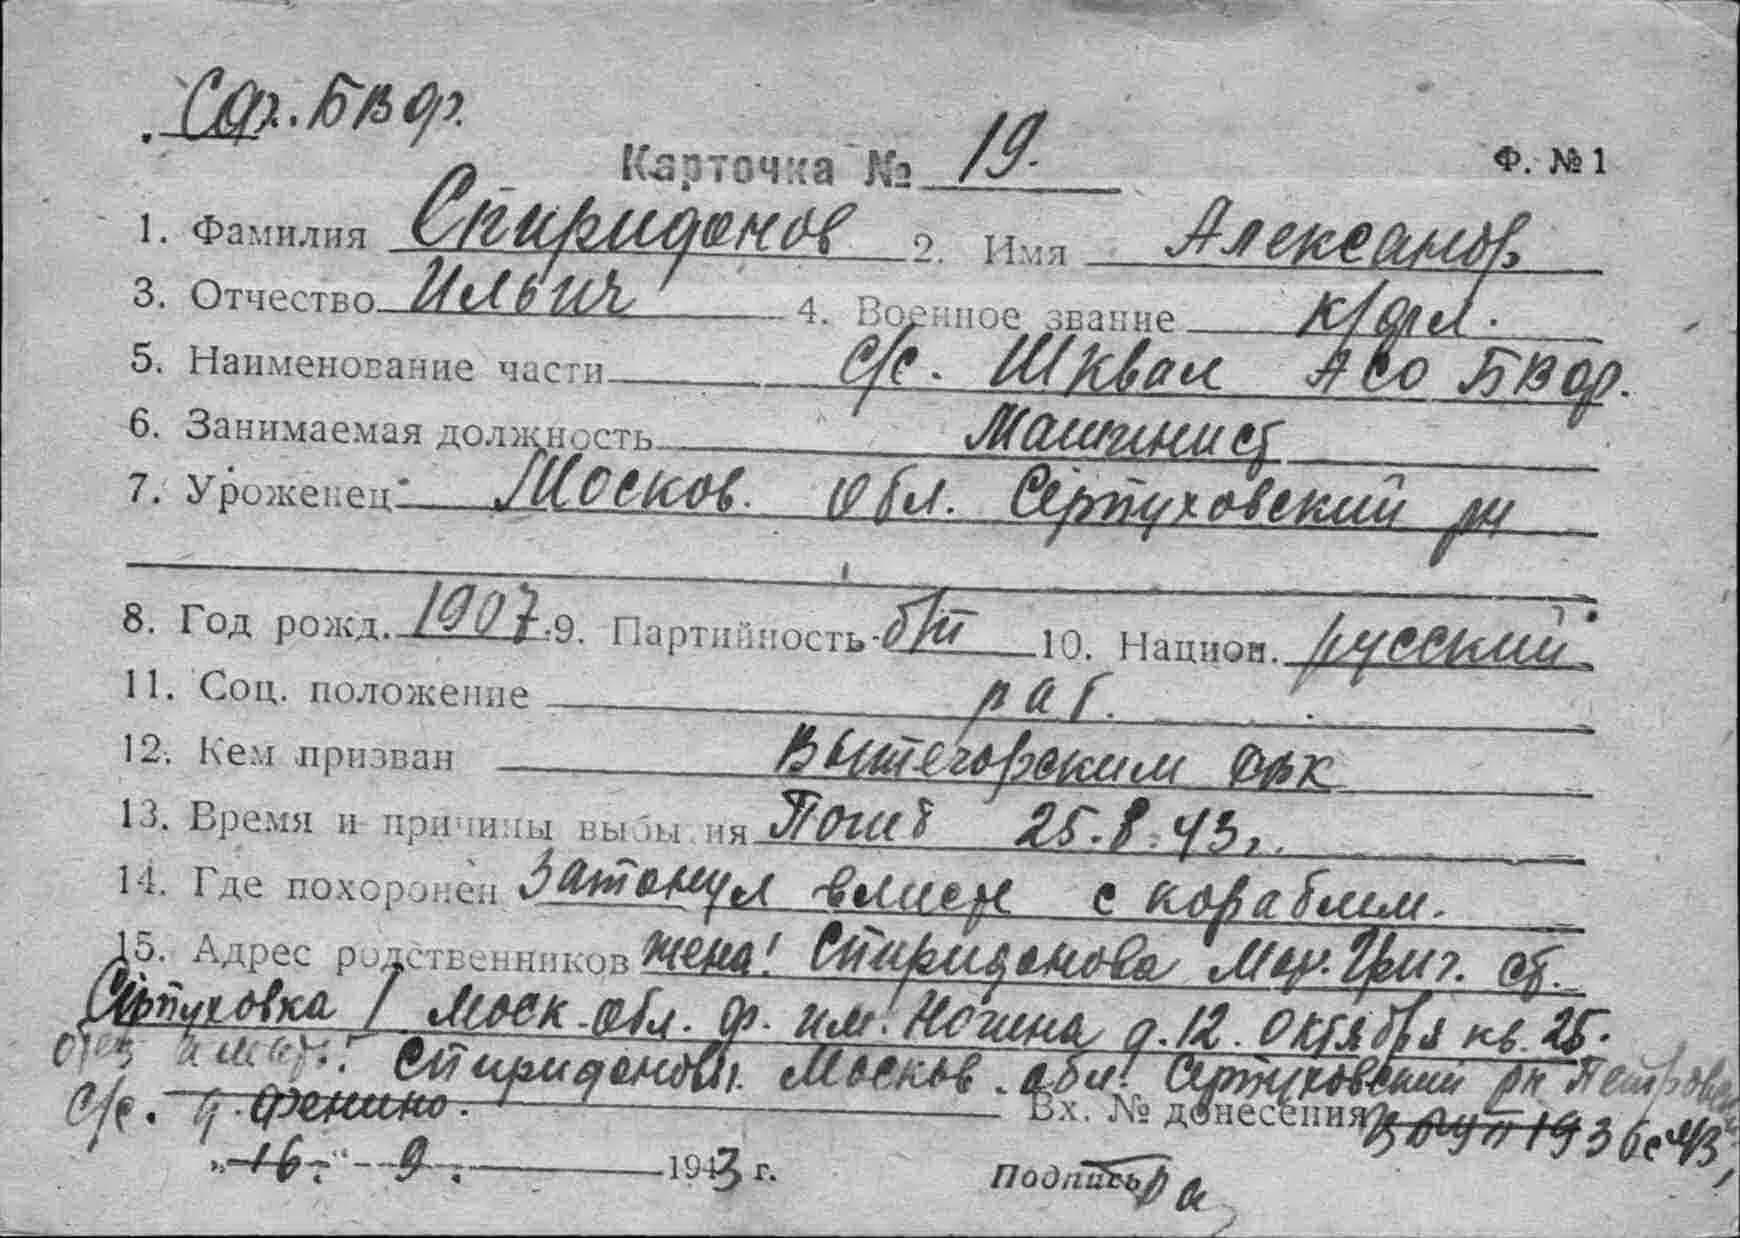 Сф. БВф.
Карточка № 19. Ф. № 1
1. Фамилия Спиридонов 2. Имя Александр
3. Отчество Ильич 4. Военное звание к/фл.
5. Наименование части с/с. Шквал АСО БВФ.
6. Занимаемая должность Машинист
7. Уроженец Москов. Обл. Серпуховский рн
8. Год рожд. 1907. 9. Партийность б/п 10. Национ. русский
11. Соц. положение раб.
12. Кем призван Вытегорским РВК
13. Время и причины выбытия Погиб 25.8.43 г.
14. Где похоронен Затонул вместе с кораблем.
15. Адрес родственников жена! Спиридонова Мар. Григ. ст.
Серпуховка / Моск. обл. ф. им. Ногина д. 12. Октября кв. 25.
отец и мать: Спиридоновы. Москов. обл. Серпуховский рн
с/с. д. Фенино. Вх. № донесения 1936с 43
„16." 9. 1943 г. Подпись